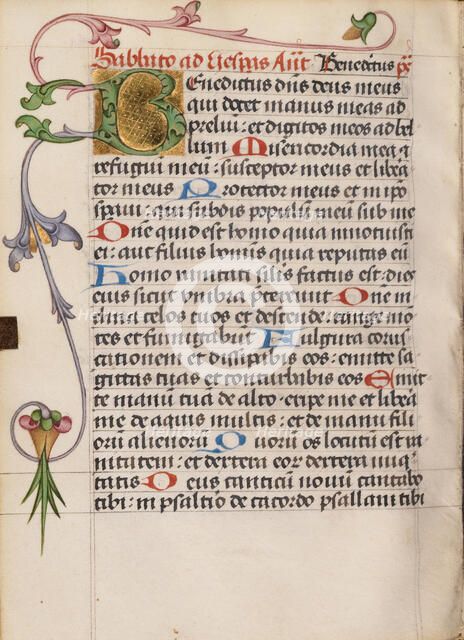 Sabbato ad vespas Ant Benedictus ps
Benedictus dns deus meus
qui docet manus meas ad
preliu : et digitos meos ad bel
lum Misericordia mea et
refugiu meu : susceptor meus et libera
tor meus Protector meus et in ipo
spaui : qui subdis populum meu sub me
Dne quid est homo quia innotuisti
ei : aut filius hominis quia reputas eu
Homo vanitati silis factus est : dies
eius sicut vmbra ptereunt Dne in
clina celos tuos et descende : tange mon
tes et fumigabunt Fulgura corus
cationem et dissipabis eos : emitte sa
gittas tuas et conturbabis eos Emit
te manu tua de alto : eripe me et libera
me de aquis multis : et de manu fili
oru alienoru Quoru os locutu est va
nitatem : et dextera eor dextera iniq
tatis Deus canticu nouu cantabo
tibi : in psaltio decacordo psallam tibi